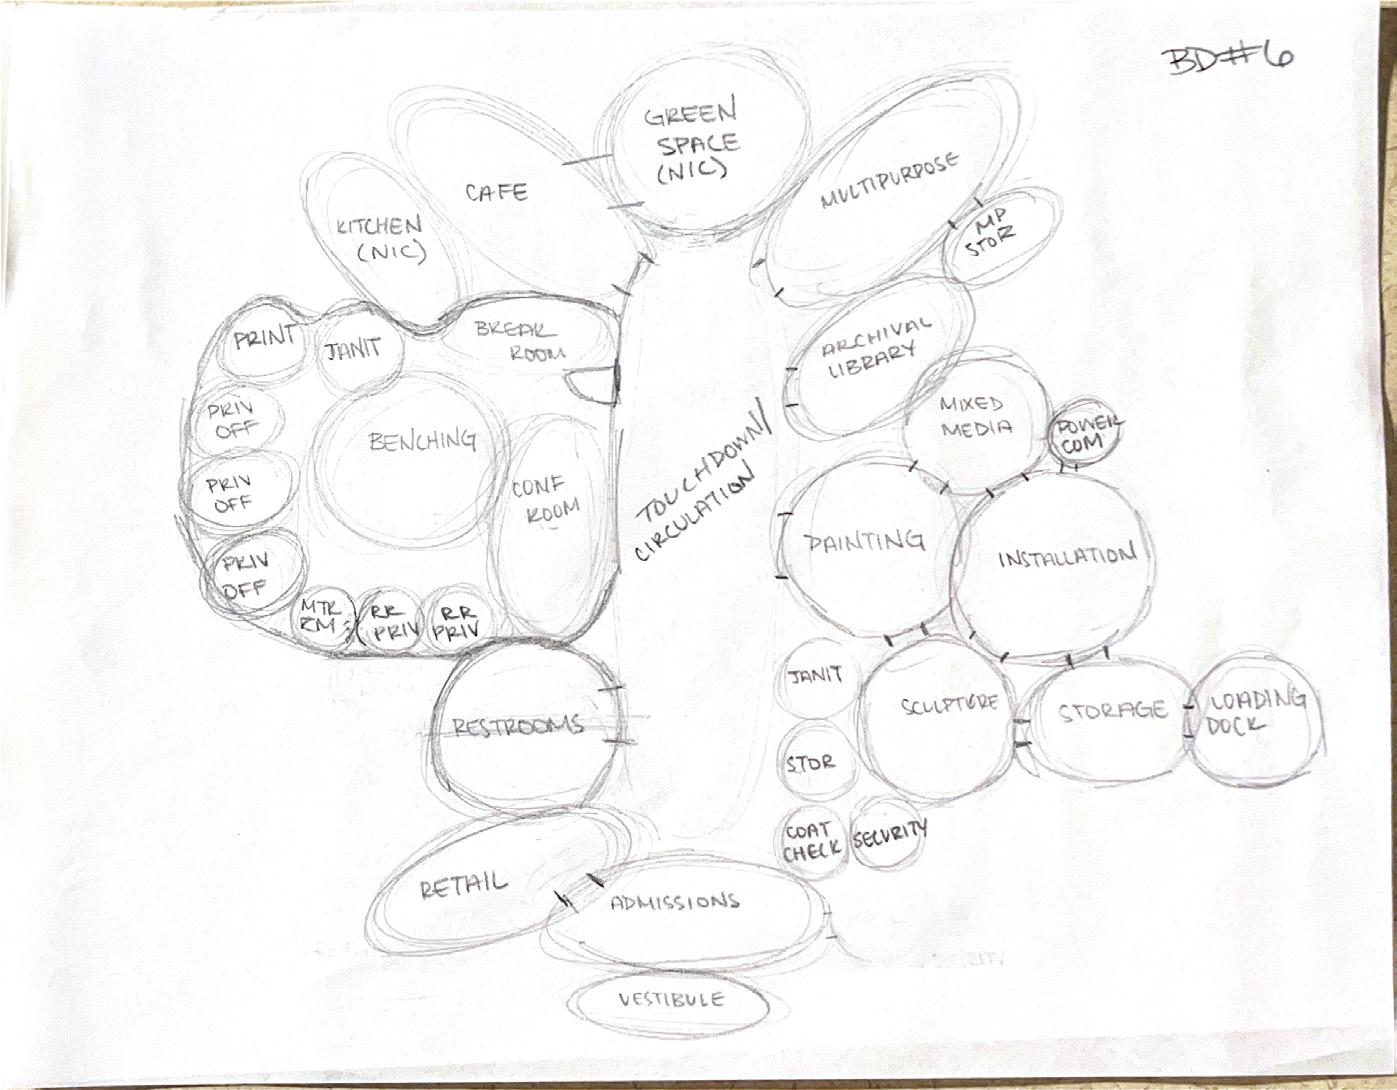 BD#6
GREEN
SPACE
(NIC)
CAFE
MULTIPURPOSE
KITCHEN
(NIC)
MP
STOR
PRINT
JANIT
BREAK
ROOM
ARCHIVAL
LIBRARY
PRIV
OFF
BENCHING
MIXED
MEDIA
POWER
COM
PRIV
OFF
CONF
ROOM
TOUCHDOWN/
CIRCULATION
PAINTING
INSTALLATION
PRIV
OFF
MTR
RM
RR
PRIV
RR
PRIV
RESTROOMS
JANIT
SCULPTURE
STORAGE
LOADING
DOCK
STOR
COAT
CHECK
SECURITY
RETAIL
ADMISSIONS
VESTIBULE